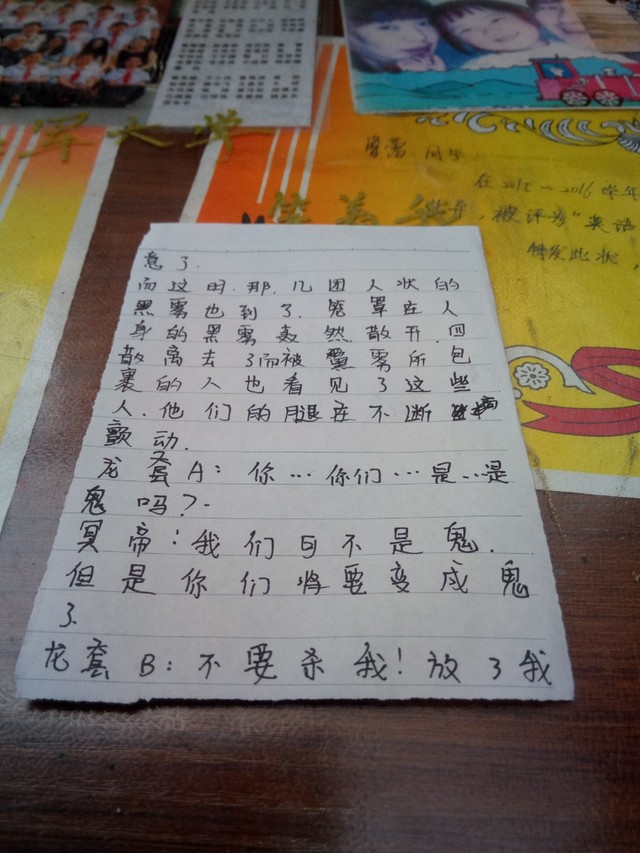 军大学
同学
在2015～2016学年
，被评为"英语
特发此状，
意了.
而这时.那.几团人状的
黑雾也到了.笼罩在人
身的黑雾轰然散开.四
散离去了而被黑雾所包
裹的人也看见了这些
人.他们的腿在不断
颤动.
龙套A:你…你们…是…是
鬼吗?.
冥帝:我们可不是鬼.
但是你们将要变成鬼
了.
龙套B:不要杀我!放了我